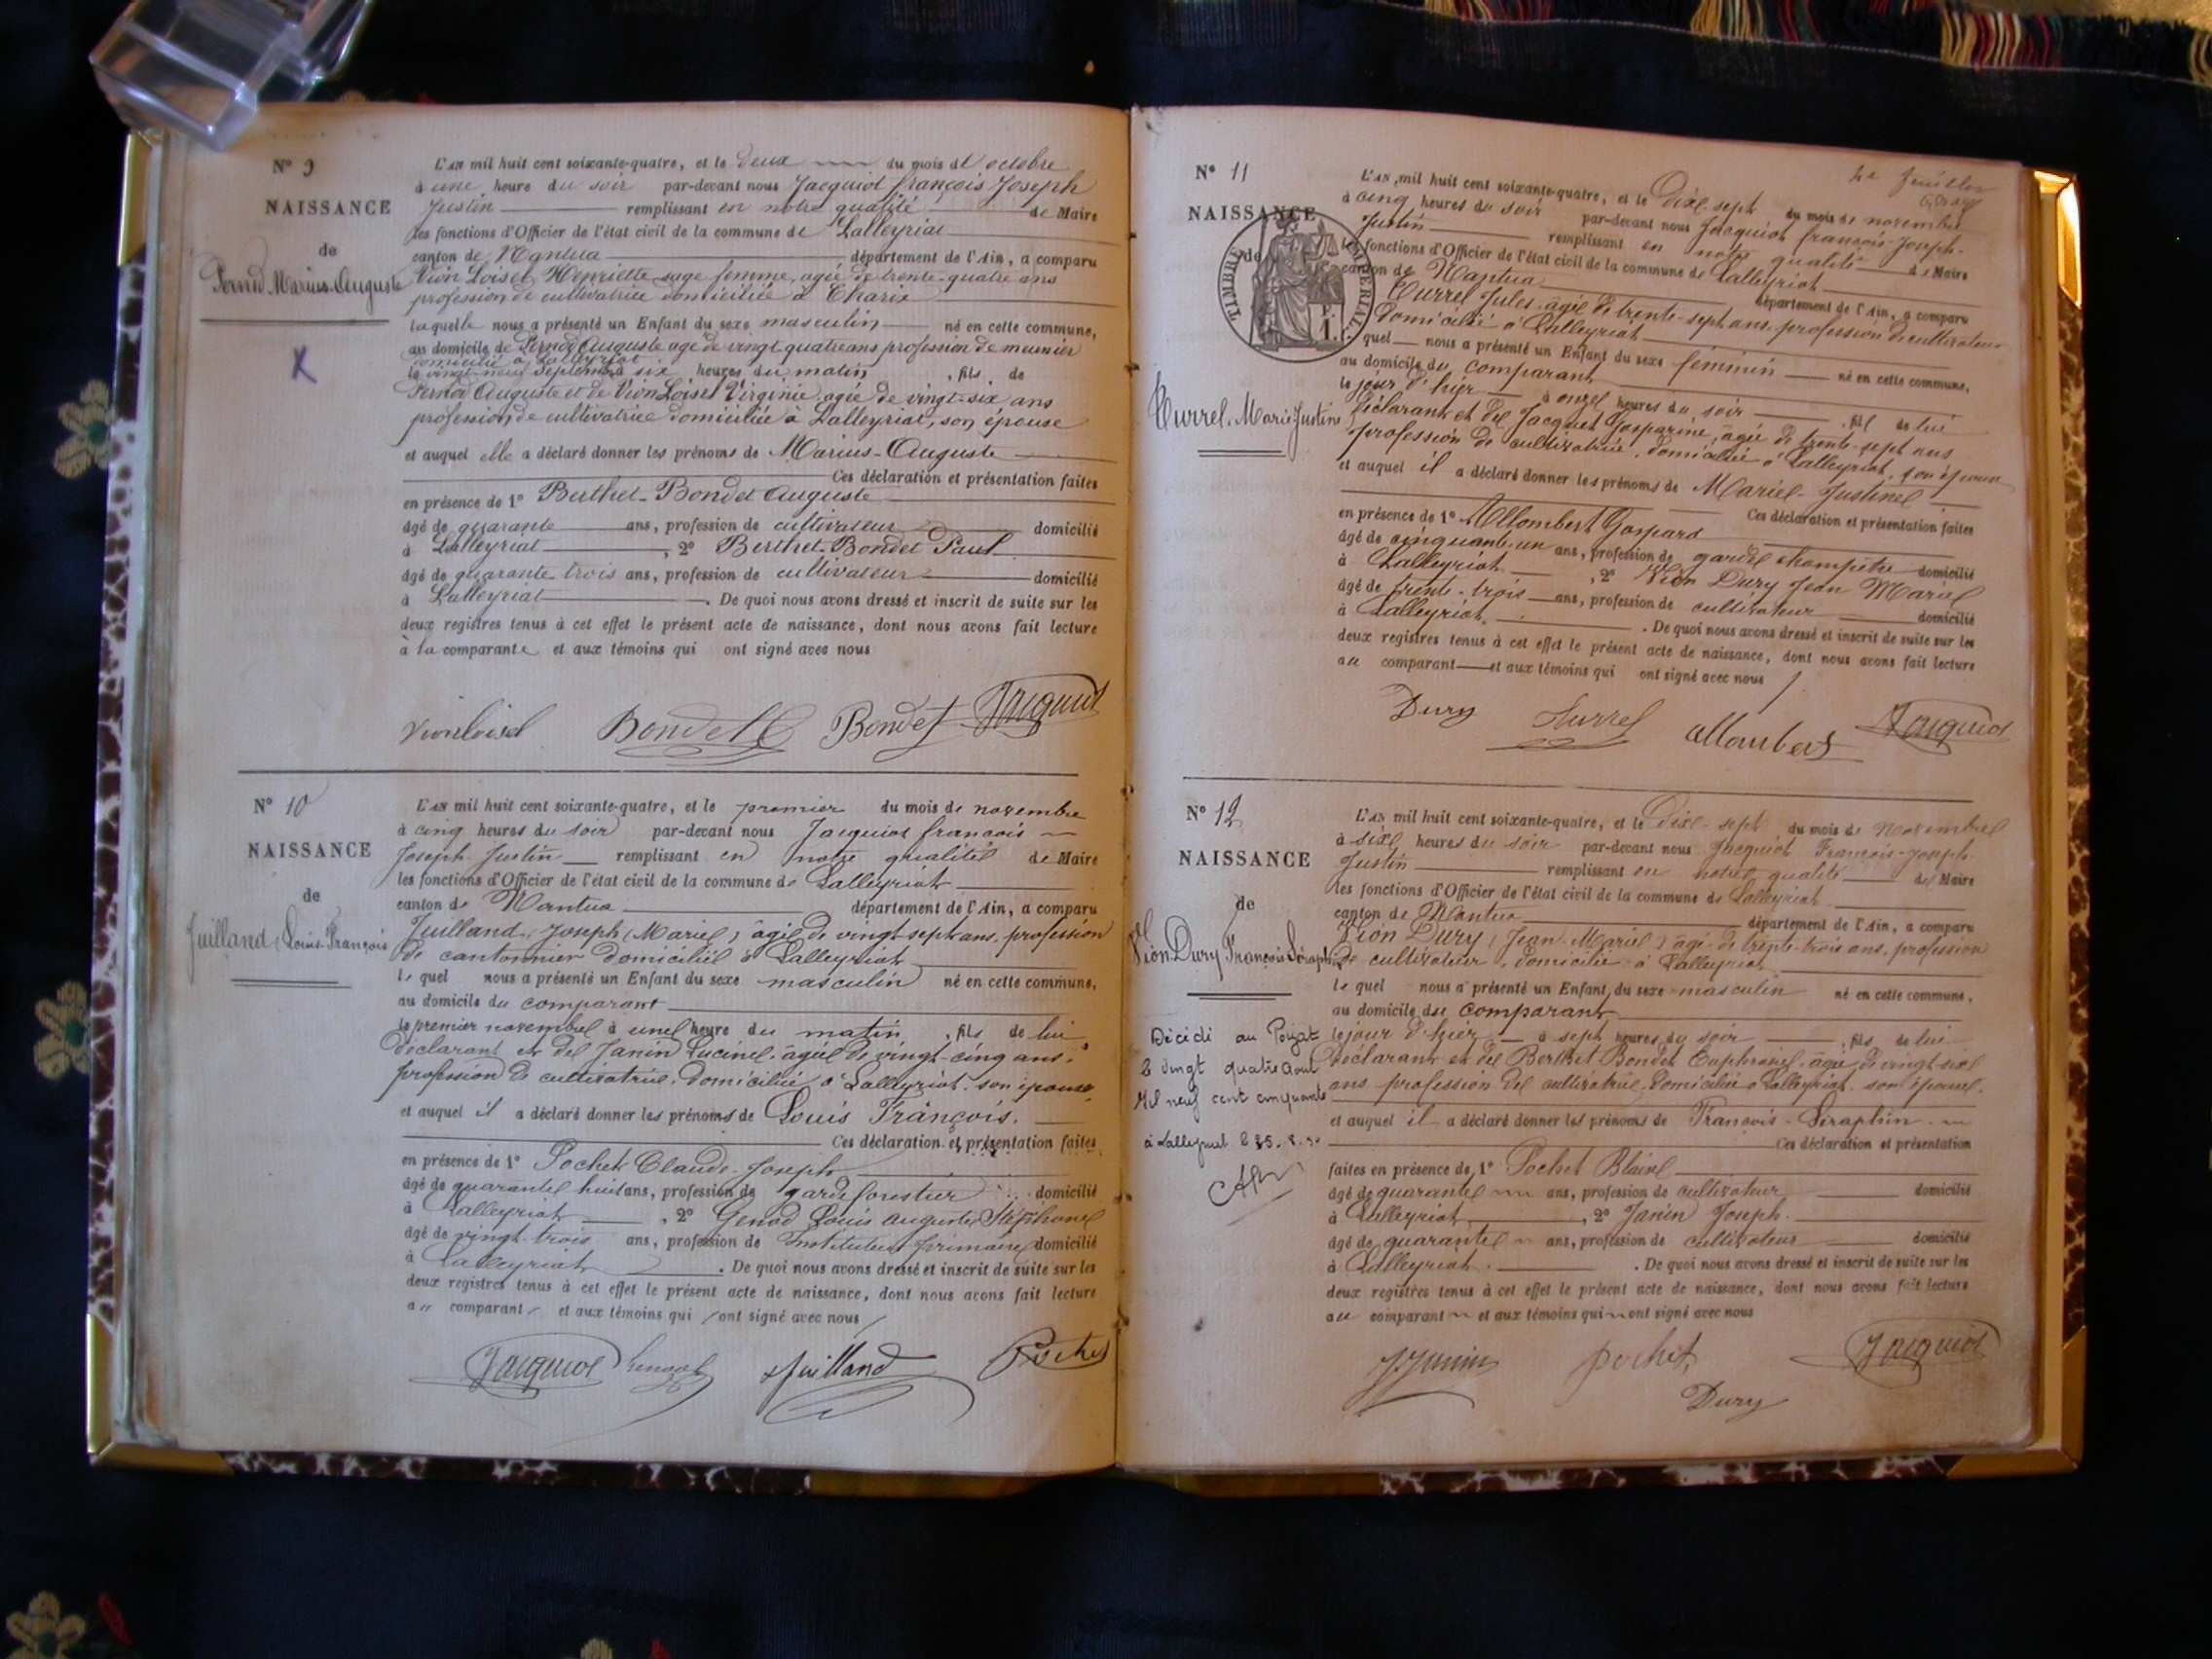 N° 9
NAISSANCE
de
Pernod Marius-Auguste
L'AN mil huit cent soixante-quatre, et le deux du mois d'octobre
à une heure du soir par-devant nous Jacquiot françois Joseph
Justin remplissant en notre qualité de Maire
les fonctions d'Officier de l'état civil de la commune de Lalleyriat
canton de Nantua département de l'Ain, a comparu
Vion Loisel Henriette sage femme, agée de trente-quatre ans
profession de cultivatrice domiciliée à Charix
laquelle nous a présenté un Enfant du sexe masculin né en cette commune,
au domicile de Pernod Auguste age de vingt quatre ans profession de meunier
domicilié à Lalleyriat
le vingt-neuf septembre à six heures du matin, fils de
Pernod Auguste et de Vion Loisel Virginie, agée de vingt-six ans
profession de cultivatrice domiciliée à Lalleyriat, son épouse
et auquel elle a déclaré donner les prénoms de Marius-Auguste
Ces déclaration et présentation faites
en présence de 1° Berthet-Bondet Auguste
âgé de quarante ans, profession de cultivateur domicilié
à Lalleyriat, 2° Berthet-Bondet Paul
âgé de quarante trois ans, profession de cultivateur domicilié
à Lalleyriat. De quoi nous avons dressé et inscrit de suite sur les
deux registres tenus à cet effet le présent acte de naissance, dont nous avons fait lecture
à la comparante et aux témoins qui ont signé avec nous
Vionloisel Bondet Bondet Jacquiot
N° 10
NAISSANCE
de
Juilland, Louis-François
L'AN mil huit cent soixante-quatre, et le premier du mois de novembre
à cinq heures du soir par-devant nous Jacquiot françois
Joseph Justin remplissant en notre qualité de Maire
les fonctions d'Officier de l'état civil de la commune de Lalleyriat
canton de Nantua département de l'Ain, a comparu
Juilland, Joseph (Marie) âgé de vingt sept ans, profession
de cantonnier domicilié à Lalleyriat
le quel nous a présenté un Enfant du sexe masculin né en cette commune,
au domicile du comparant
le premier novembre à une heure du matin, fils de lui
déclarant et de Janin Lucine, âgée de vingt-cinq ans,
profession de cultivatrice, domiciliée à Lalleyriat, son épouse,
et auquel il a déclaré donner les prénoms de Louis François.
Ces déclaration et présentation faites
en présence de 1° Pochet Claude-Joseph
âgé de quarante huit ans, profession de garde forestier domicilié
à Lalleyriat, 2° Genod Louis auguste Stéphane
âgé de vingt-trois ans, profession de Instituteur primaire domicilié
à Lalleyriat. De quoi nous avons dressé et inscrit de suite sur les
deux registres tenus à cet effet le présent acte de naissance, dont nous avons fait lecture
au comparant et aux témoins qui ont signé avec nous
Jacquiot Juilland Pochet
N° 11
NAISSANCE
de
TIMBRE IMPÉRIAL
Turrel, Marie Justine
L'AN mil huit cent soixante-quatre, et le Dix-sept du mois de novembre
à cinq heures du soir par-devant nous Jacquiot françois-Joseph-
Justin remplissant en notre qualité de Maire
les fonctions d'Officier de l'état civil de la commune de Lalleyriat
canton de Nantua département de l'Ain, a comparu
Turrel Jules âgé de trente-sept ans, profession de cultivateur
domicilié à Lalleyriat
le quel nous a présenté un Enfant du sexe féminin né en cette commune,
au domicile du comparant
le jour d'hier à onze heures du soir, fil de lui
déclarant et de Jacquet Gasparine, âgée de trente-sept ans
profession de cultivatrice, domiciliée à Lalleyriat, son épouse
et auquel il a déclaré donner les prénoms de Marie-Justine
Ces déclaration et présentation faites
en présence de 1° Allombert Gaspard
âgé de cinquante-un ans, profession de garde champêtre domicilié
à Lalleyriat, 2° Vion Dury Jean Marie
âgé de trente-trois ans, profession de cultivateur domicilié
à Lalleyriat. De quoi nous avons dressé et inscrit de suite sur les
deux registres tenus à cet effet le présent acte de naissance, dont nous avons fait lecture
au comparant et aux témoins qui ont signé avec nous
Dury Turrel allombert Jacquiot
N° 12
NAISSANCE
de
Vion Dury François Séraphin
Décédé au Poizat
le vingt quatre aout
Mil neuf cent cinquante
L'AN mil huit cent soixante-quatre, et le Dix-sept du mois de Novembre
à six heures du soir par-devant nous Jacquiot François-Joseph-
Justin remplissant en notre qualité de Maire
les fonctions d'Officier de l'état civil de la commune de Lalleyriat
canton de Nantua département de l'Ain, a comparu
Vion Dury (Jean-Marie) âgé de trente-trois ans, profession
de cultivateur, domicilié à Lalleyriat
le quel nous a présenté un Enfant du sexe masculin né en cette commune,
au domicile du comparant
le jour d'hier à sept heures du soir, fils de lui
déclarant et de Berthet-Bondet Euphrosine, âgée de vingt-six
ans profession de cultivatrice, domiciliée à Lalleyriat, son épouse.
et auquel il a déclaré donner les prénoms de François-Séraphin
Ces déclaration et présentation
faites en présence de 1° Pochet Blaise
âgé de quarante ans, profession de cultivateur domicilié
à Lalleyriat, 2° Janin Joseph
âgé de quarante ans, profession de cultivateur domicilié
à Lalleyriat. De quoi nous avons dressé et inscrit de suite sur les
deux registres tenus à cet effet le présent acte de naissance, dont nous avons fait lecture
au comparant et aux témoins qui ont signé avec nous
J Janin pochet Jacquiot
Dury